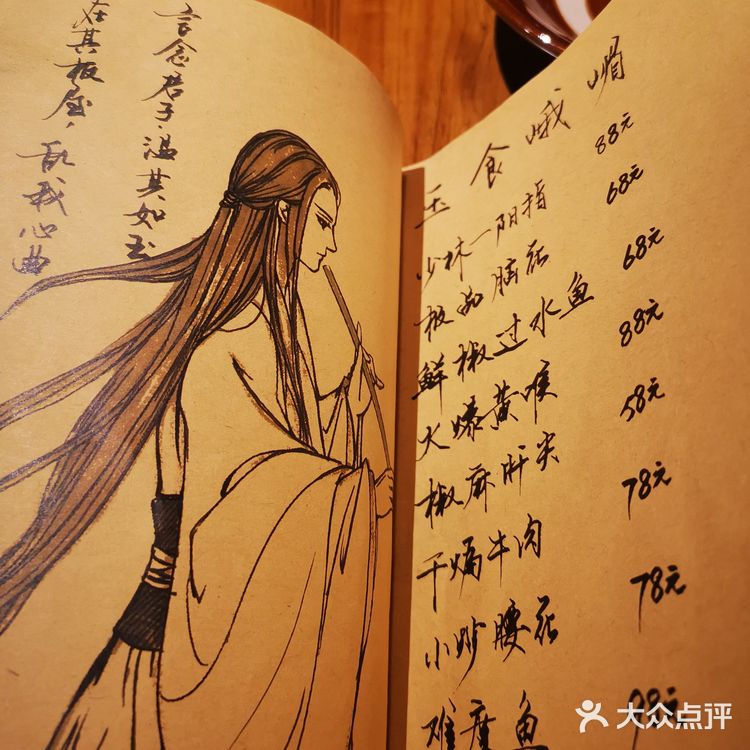 言念君子,温其如玉
在其板屋,乱我心曲
玉食峨嵋
少林一阳指 88元
极品脑花 68元
鲜椒过水鱼 68元
火爆黄喉 88元
椒麻肝尖 58元
干煸牛肉 78元
小炒腰花 78元
难度鱼 98元
大众点评